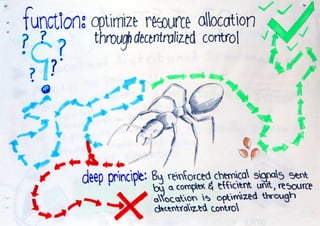 function: optimize resource allocation
through decentralized control
? ? ? ? ?
deep principle: By reinforced chemical signals sent
by a complex & efficient unit, resource
allocation is optimized through
decentralized control